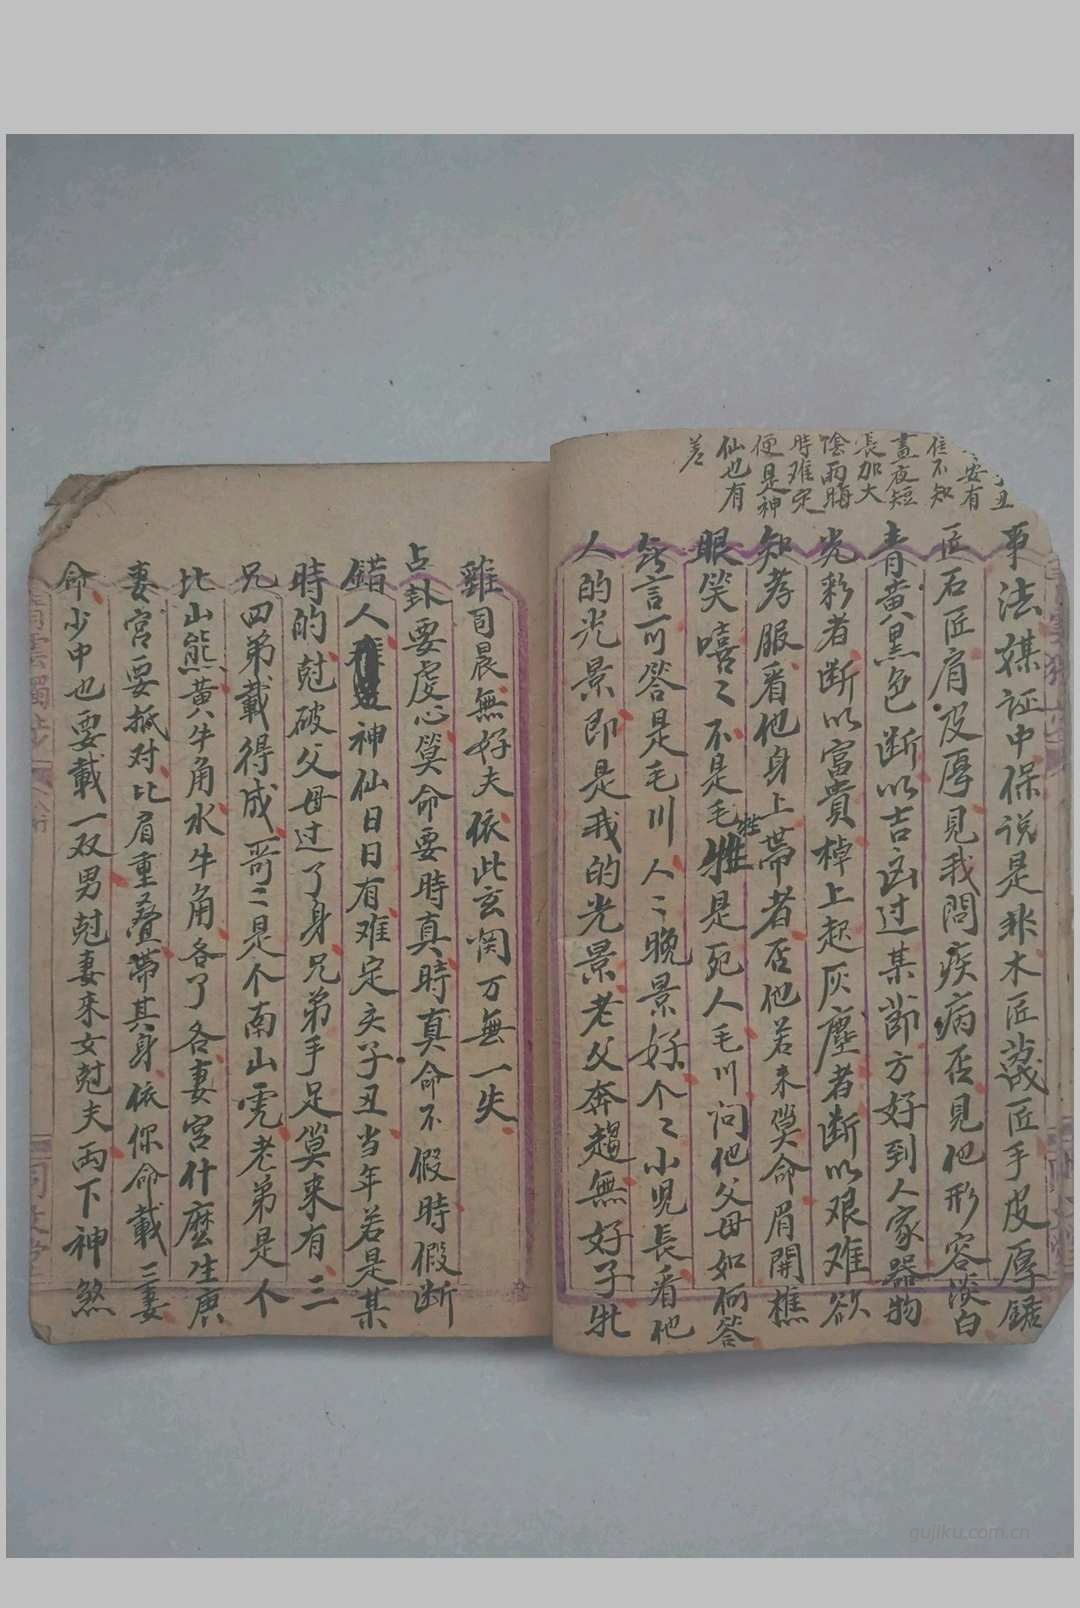 丑
安有
住不知
晝夜短
長加大
陰雨晦
時难定
便是神
仙也有
差
事法媒証中保说是非木匠裁匠手皮厚鋸
匠石匠肩皮厚見我問疾病否見他形容淡白
青黄黑色断以吉凶过某節方好到人家器物
光彩者断以富貴棹上起灰塵者断以艰难欲
知孝服看他身上帶者否他若来筭命眉開樵
眼笑嘻〻不是毛牲是死人毛川问他父母如何答
無言可答是毛川人〻晚景好个〻小児長看他
人的光景即是我的光景老父奔趨無好子牝
雞司晨無好夫依此玄関万無一失
占卦要虔心筭命要時真時真命不假時假断
錯人神仙日日有难定亥子丑当年若是某
時的尅破父母过了身兄弟手足筭来有三
兄四弟載得成哥二是个南山虎老弟是个
比山熊黄牛角水牛角各了各妻宮什麽生庚
妻宮要抵对比肩重叠帶其身依你命載三妻
命少中也要載一双男尅妻来女尅夫両下神煞
gujiku.com.cn